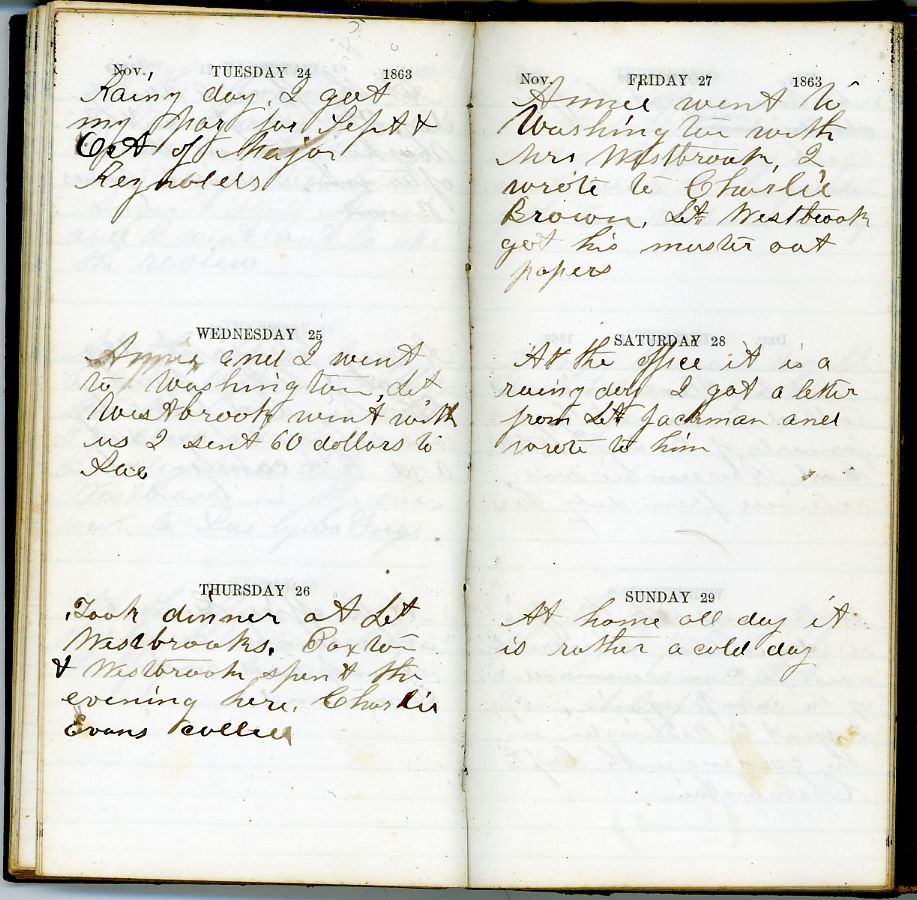 Nov. TUESDAY 24 1863
Rainy day. I got
my pay for Sept &
Oct of Major
Reynolds
WEDNESDAY 25
Annie and I went
to Washington, Lt
Westbrook went with
us I sent 60 dollars to
Sue
THURSDAY 26
Took dinner at Lt
Westbrooks. Paxton
& Westbrook spent the
evening here. Charlie
Evans called
Nov. FRIDAY 27 1863
Annie went to
Washington with
Mrs Westbrook, I
wrote to Charlie
Brown. Lt Westbrook
got his muster out
papers
SATURDAY 28
At the office it is a
rainy day I got a letter
from Lt Jackman and
wrote to him
SUNDAY 29
At home all day it
is rather a cold day